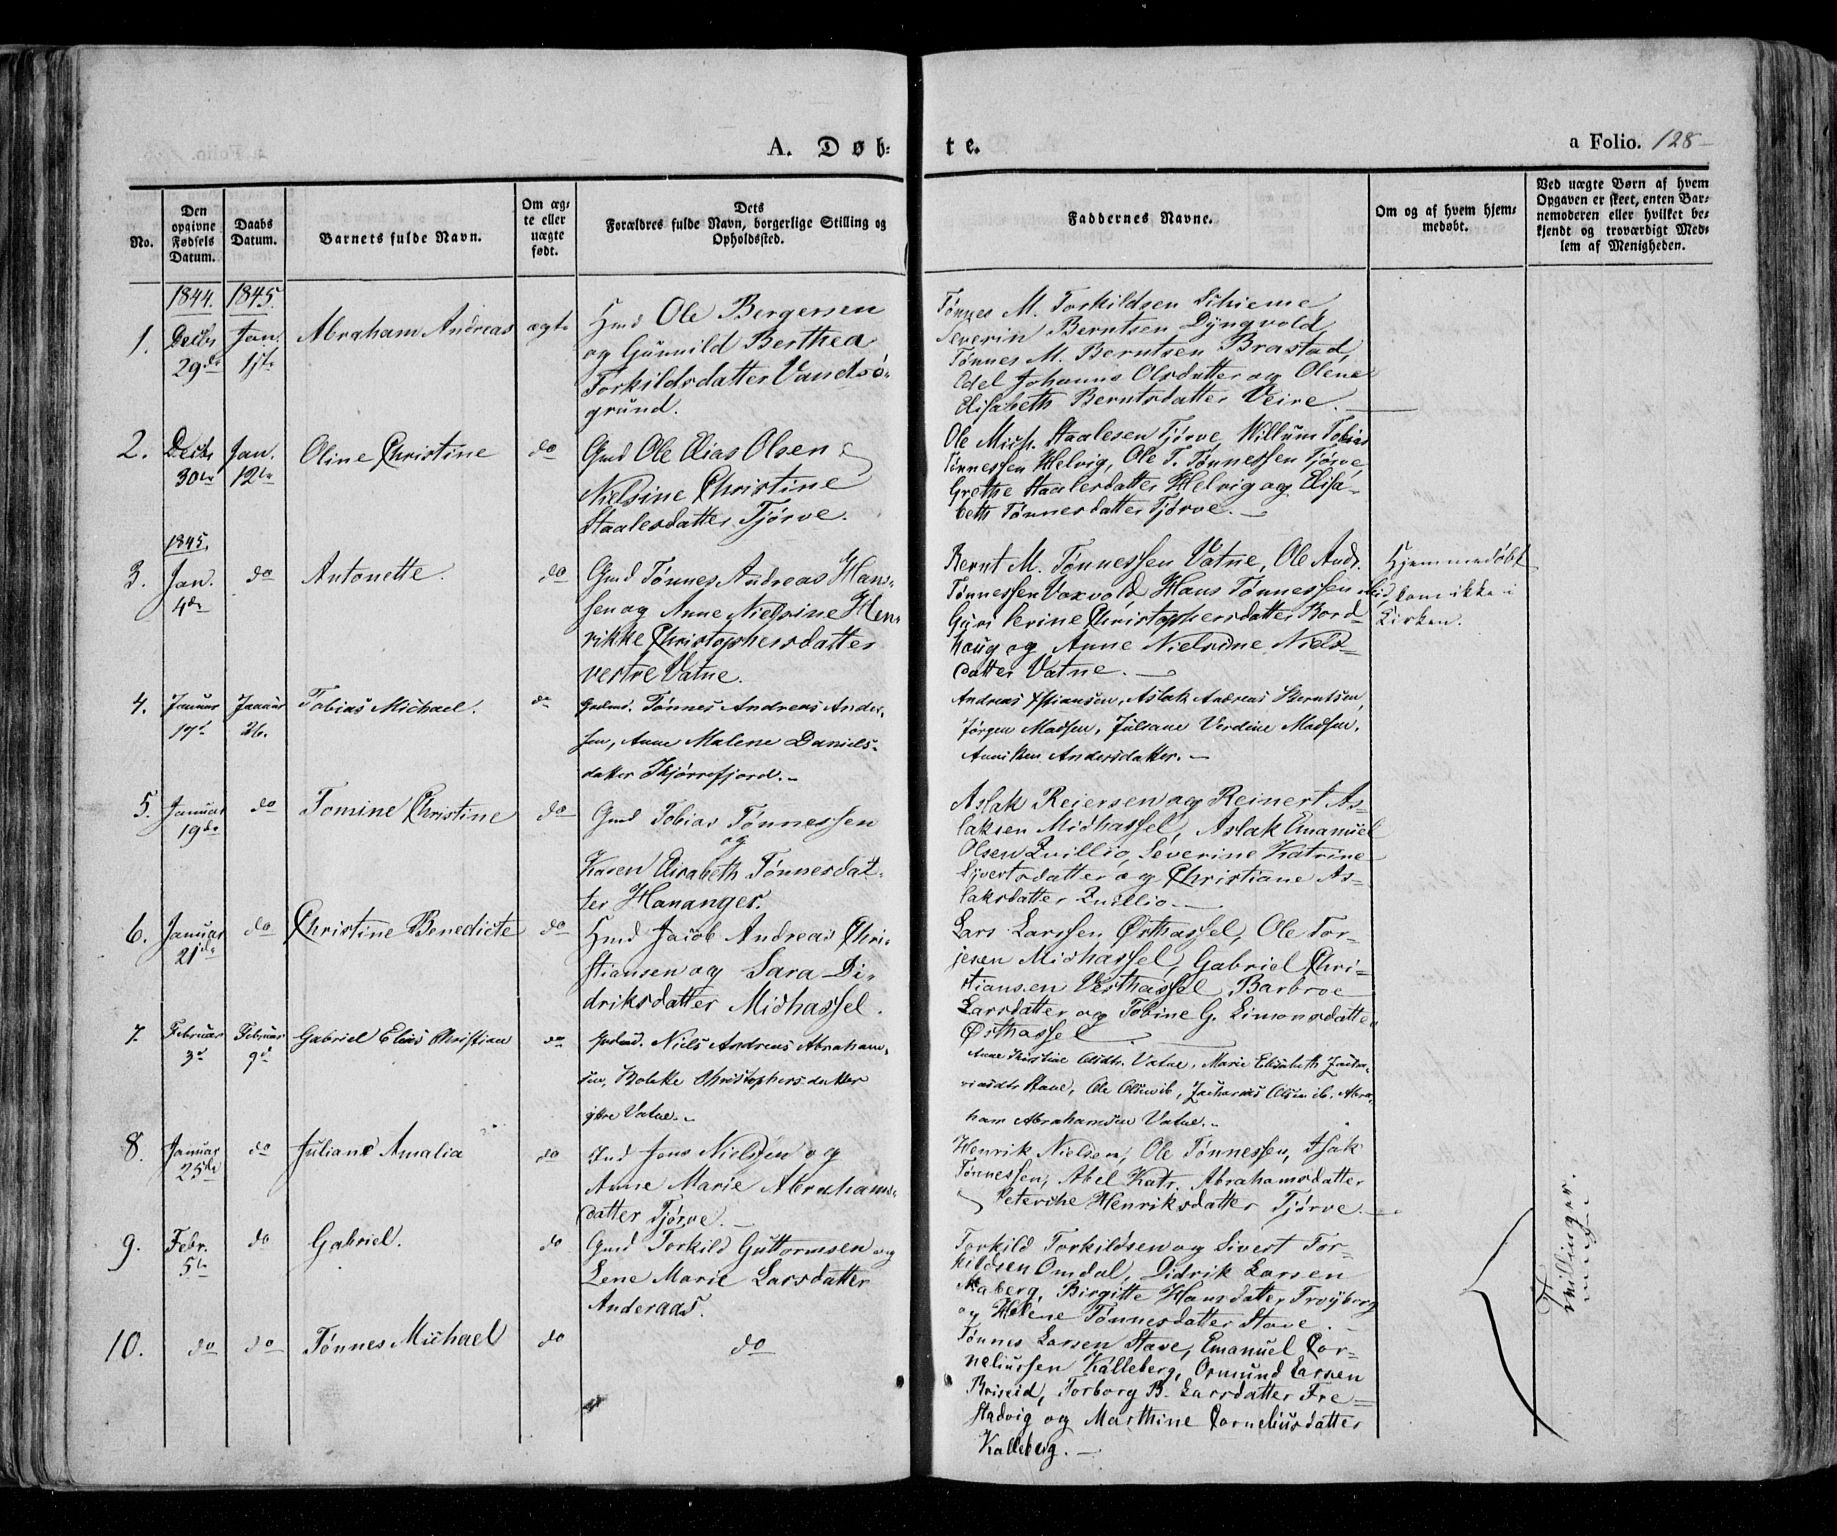 A. Døb- te.
a Folio. 128
No.
Den opgivne Fødsels Datum.
Daabs Datum.
Barnets fulde Navn.
Om ægte eller uægte født.
Dets Forældres fulde Navn, borgerlige Stilling og Opholdssted.
Faddernes Navne.
Om og af hvem hjemmedøbt.
Ved uægte Børn af hvem Opgaven er skeet, enten Barnemoderen eller hvilket bekjendt og troværdigt Medlem af Menigheden.
1844. 1845.
1. Decbr 29de
Jan. 1ste
Abraham Andreas
ægte
Hmd Ole Bergersen
og Gunnild Berthea
Torkildsdatter Vandsø-
grund.
Tønnes M. Torkildsen Skieme
Severin Berntsen Dyngvold,
Tønnes M. Berntsen Brastad,
Edel Johanne Olsdatter og Olene
Elisabeth Berntsdatter Veire.
2. Decbr 30te
Jan. 12te
Oline Christine
do
Gmd Ole Elias Olsen &
Nielsine Christine
Staalesdatter Tjørve.
Ole Mich. Staalesen Tjørve, Willum Tobias
Tønnessen Helvig, Ole T. Tønnessen Tjørve,
Grethe Staalesdatter Helvig og Elisa-
beth Tønnesdatter Tjørve.
1845.
3. Jan. 4de
do
Antonette.
do
Gmd Tønnes Andreas Han-
sen og Anne Nielsine Hen-
rikke Christophersdatter
vestre Vatne.
Bernt M. Tønnessen Vatne, Ole Andr.
Tønnessen Vaxvold, Hans Tønnessen
Guri Serine Christophersdatter Bord-
houg og Anne Nielsine Niels-
datter Vatne.
Hjemmedøbt
kom ikke i
Kirken.
4. Januar 17d
Januar 26.
Tobias Michael.
do
Gmd. Tønnes Andreas Ander-
sen, Anne Malene Daniels-
datter Skjørrefjord.
Andreas Xstiansen, Aslak Andreas Berntsen,
Jørgen Madsen, Juliane Verdine Madsen,
Anniken Andersdatter.
5. Januar 19de
do
Tomine Christine
do
Gmd Tobias Tønnessen
og
Karen Elisabeth Tønnesdat-
ter Hananger.
Aslak Reiersen og Reinert As-
laksen Midhassel, Aslak Emanuel
Olsen Qvillio, Severine Katrine
Sivertsdatter og Christiane As-
laksdatter Qvillio.
6. Januar 21de
do
Christine Benedicte
do
Hmd Jacob Andreas Chri-
stiansen og Sara Di-
driksdatter Midhassel.
Lars Larssen Østhassel, Ole Tor-
jesen Midhassel, Gabriel Chri-
stiansen Vesthassel, Barbroe
Larsdatter og Tobine G. Simonsdatter
Østhassel
7. Februar 3d
Februar 9d
Gabriel Elias Christian
do
Gmd. Niels Andreas Abraham-
sen, Bolette Christophersdatter
ytre Vatne.
Anne Kirstine Olsdtr. Vatne, Marie Elisabeth Zacha-
riasdtr Stave, Ole Olsen ib, Zacharias Olsen ib. Abra-
ham Abrahamsen Vatne.
8. Januar 25de
do
Juliane Amalia
do
Ind Jens Nielsen og
Anne Marie Abrahams-
datter Tjørve.
Henrik Nielsen, Ole Tønnessen, Isak
Tønnessen, Abel Katr. Abrahamsdatter
Peterike Henriksdatter Tjørve.
9. Febr. 5te
do
Gabriel.
do
Gmd Torkild Guttormsen og
Lene Marie Larsdatter
Anderaas.
Torkild Torkildsen og Sivert Tor-
kildsen Omdal, Didrik Larsen
Aaberg, Birgitte Hansdatter Frøyborg
og Helene Tønnesdatter Stave.
Tvillinger.
10. do
do
Tønnes Michael
do
do
Tønnes Larsen Stave, Emanuel Cor-
neliussen Kalleberg, Ormund Larsen
Briseid, Torborg B. Larsdatter Fre-
stadvig og Marthine Corneliusdatter
Kalleberg.